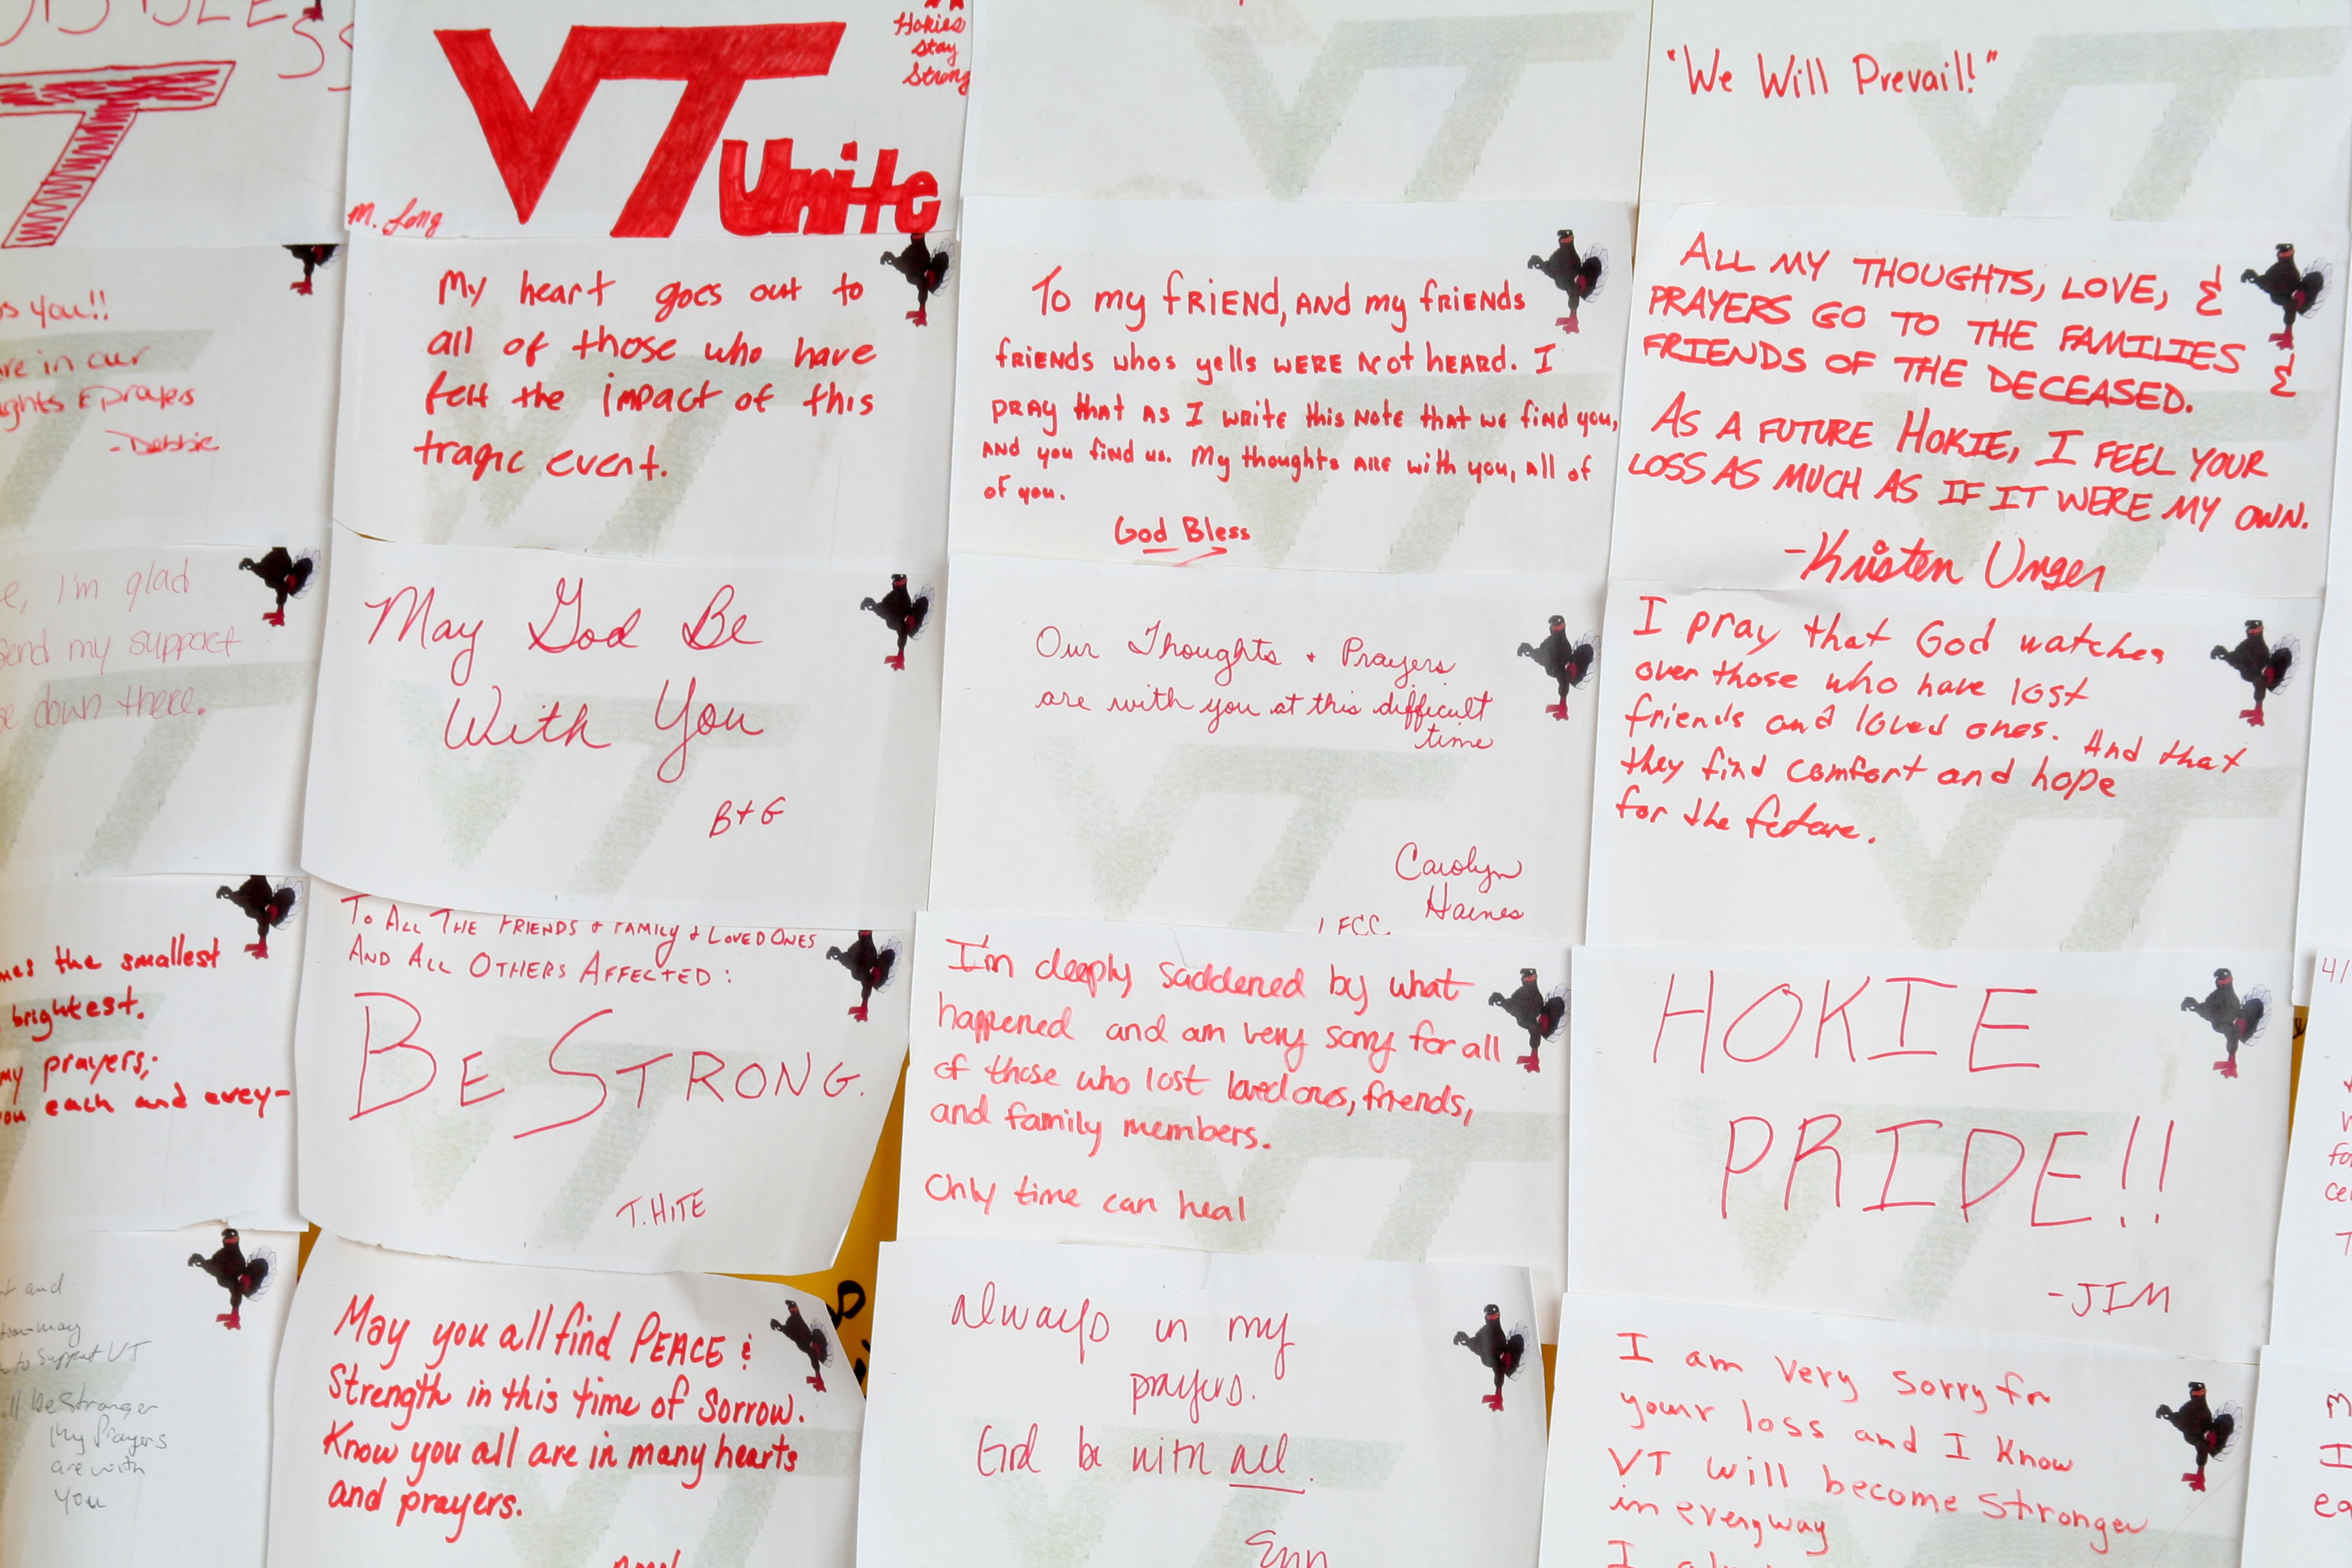 T
s you!!
re in our
ghts & prayers
-Debbie
e, I'm glad
send my support
e down there.
mes the smallest
brightest.
my prayers;
you each and every-
t and
may
to support VT
ll be stronger
My Prayers
are with
You
VT Unite
Hokies
Stay
Strong
M. Long
My heart goes out to
all of those who have
felt the impact of this
tragic event.
May God Be
With You
B+G
To All The Friends & Family & Loved Ones
And All Others Affected:
Be Strong.
T. Hite
May you all find PEACE &
Strength in this time of Sorrow.
Know you all are in many hearts
and prayers.
To my friend, and my friends
friends whos yells were not heard. I
pray that as I write this note that we find you,
and you find us. My thoughts are with you, all of
of you.
God Bless
Our Thoughts + Prayers
are with you at this difficult
time
Carolyn
Haines
FCC.
I'm deeply saddened by what
happened and am very sorry for all
of those who lost loved ones, friends,
and family members.
Only time can heal
Always in my
prayers.
God be with all.
Erin
"We Will Prevail!"
ALL MY THOUGHTS, LOVE, &
PRAYERS GO TO THE FAMILIES &
FRIENDS OF THE DECEASED.
AS A FUTURE HOKIE, I FEEL YOUR
LOSS AS MUCH AS IF IT WERE MY OWN.
-Kristen Unger
I pray that God watches
over those who have lost
friends and loved ones. And that
they find comfort and hope
for the future.
HOKIE
PRIDE!!
-JIM
I am very sorry for
your loss and I know
VT will become stronger
in everyway
4/